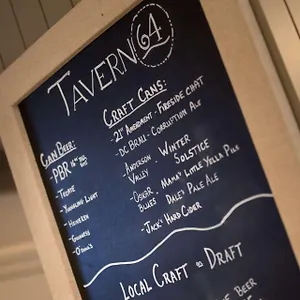 TAVERN 64
CRAFT CANS:
- 21st AMENDMENT - FIRESIDE CHAT
- DC BRAU - CORRUPTION ALE
- ANDERSON VALLEY - WINTER SOLSTICE
- OSKAR BLUES - MAMA'S LITTLE YELLA PILS
DALE'S PALE ALE
- JACK'S HARD CIDER
CAN BEER:
- PBR 16oz
- TECATE
- YUENGLING LIGHT
- HEINEKEN
- GUINNESS
- O'DOUL'S
LOCAL CRAFT DRAFT
BEER